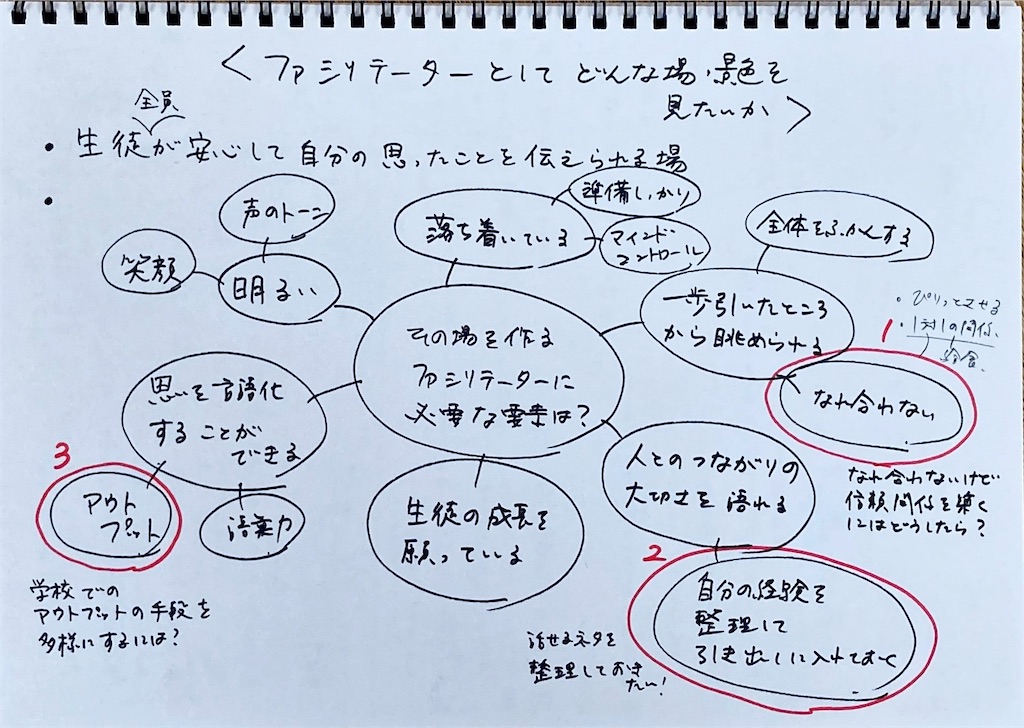 <ファシリテーターとしてどんな場・景色を
見たいか>
全員
・生徒が安心して自分の思ったことを伝えられる場
・
声のトーン
笑顔
明るい
落ち着いている
準備しっかり
マインド
コントロール
全体をふかんする
一歩引いたところ
から眺められる
・ぴりっとさせる
・1対1の関係、
給食、
1
なれ合わない
なれ合わないけど
信頼関係を築く
にはどうしたら?
その場を作る
ファシリテーターに
必要な要素は?
思いを言語化
することが
できる
3
アウト
プット
語彙力
学校での
アウトプットの手段を
多様にするには?
生徒の成長を
願っている
人とのつながりの
大切さを語れる
2
自分の経験を
整理して
引き出しに入れておく
話せるネタを
整理しておき
たい!